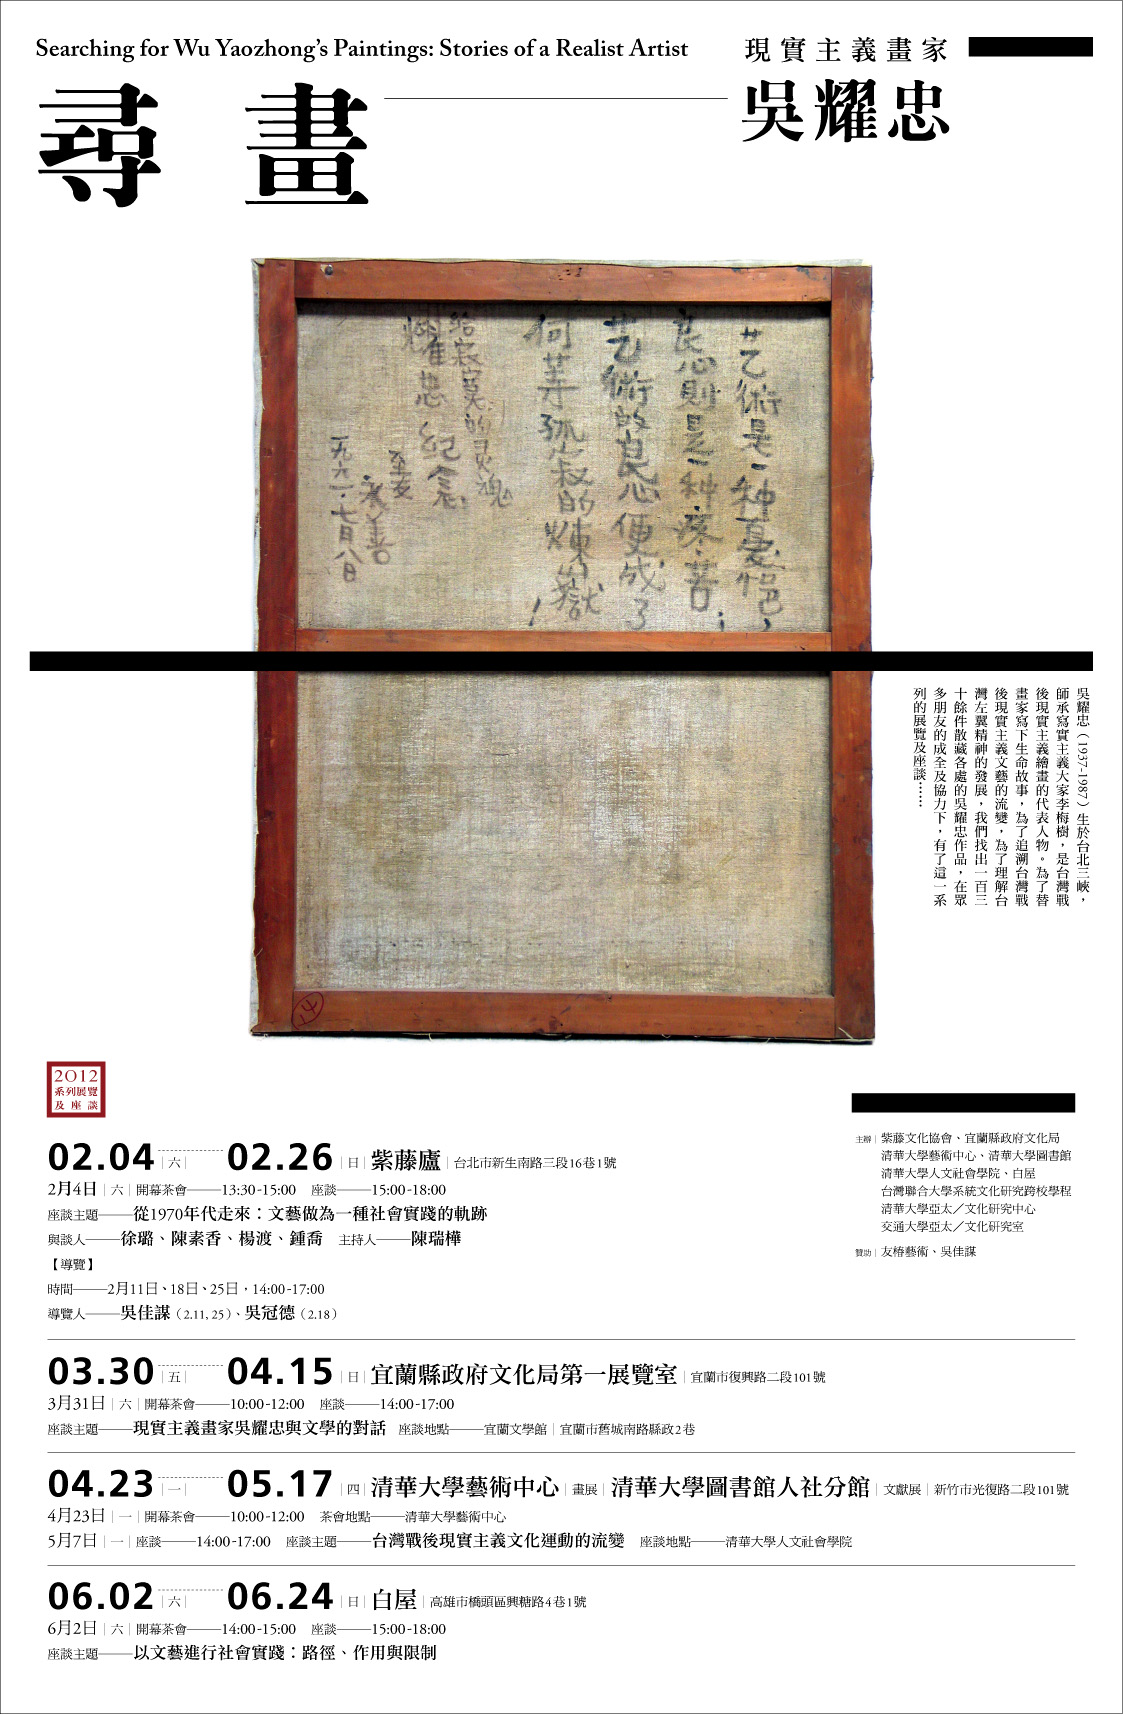 Searching for Wu Yaozhong's Paintings: Stories of a Realist Artist
現實主義畫家
吳耀忠
尋畫
艺術是一种憂悒，
良心則是一种疼苦；
艺術的良心便成了
何等孤寂的煉獄！
給寂寞的灵魂
耀忠 紀念
至友
永善
一九六一・七月八日
吳耀忠（1937-1987）生於台北三峽，
師承寫實主義大家李梅樹，是台灣戰
後現實主義繪畫的代表人物。為了替
畫家寫下生命故事，為了追溯台灣戰
後現實主義文藝的流變，為了理解台
灣左翼精神的發展，我們找出一百三
十餘件散藏各處的吳耀忠作品，在眾
多朋友的成全及協力下，有了這一系
列的展覽及座談……
2012
系列展覽
及座談
02.04｜六｜02.26｜日｜紫藤廬｜台北市新生南路三段16巷1號
2月4日｜六｜開幕茶會——13:30-15:00 座談——15:00-18:00
座談主題——從1970年代走來：文藝做為一種社會實踐的軌跡
與談人——徐璐、陳素香、楊渡、鍾喬 主持人——陳瑞樺
【導覽】
時間——2月11日、18日、25日，14:00-17:00
導覽人——吳佳謀（2.11, 25）、吳冠德（2.18）
主辦｜紫藤文化協會、宜蘭縣政府文化局
清華大學藝術中心、清華大學圖書館
清華大學人文社會學院、白屋
台灣聯合大學系統文化研究跨校學程
清華大學亞太／文化研究中心
交通大學亞太／文化研究室
贊助｜友椿藝術、吳佳謀
03.30｜五｜04.15｜日｜宜蘭縣政府文化局第一展覽室｜宜蘭市復興路二段101號
3月31日｜六｜開幕茶會——10:00-12:00 座談——14:00-17:00
座談主題——現實主義畫家吳耀忠與文學的對話 座談地點——宜蘭文學館｜宜蘭市舊城南路縣政2巷
04.23｜一｜05.17｜四｜清華大學藝術中心｜畫展｜清華大學圖書館人社分館｜文獻展｜新竹市光復路二段101號
4月23日｜一｜開幕茶會——10:00-12:00 茶會地點——清華大學藝術中心
5月7日｜一｜座談——14:00-17:00 座談主題——台灣戰後現實主義文化運動的流變 座談地點——清華大學人文社會學院
06.02｜六｜06.24｜日｜白屋｜高雄市橋頭區興糖路4巷1號
6月2日｜六｜開幕茶會——14:00-15:00 座談——15:00-18:00
座談主題——以文藝進行社會實踐：路徑、作用與限制